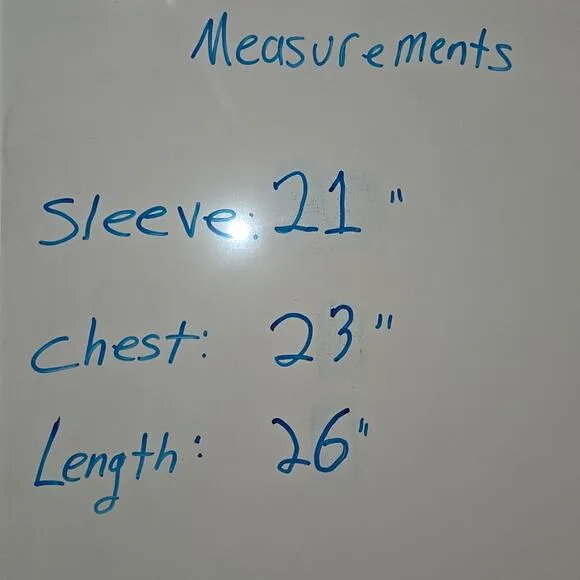 Measurements
Sleeve: 21"
Chest: 23"
Length: 26"